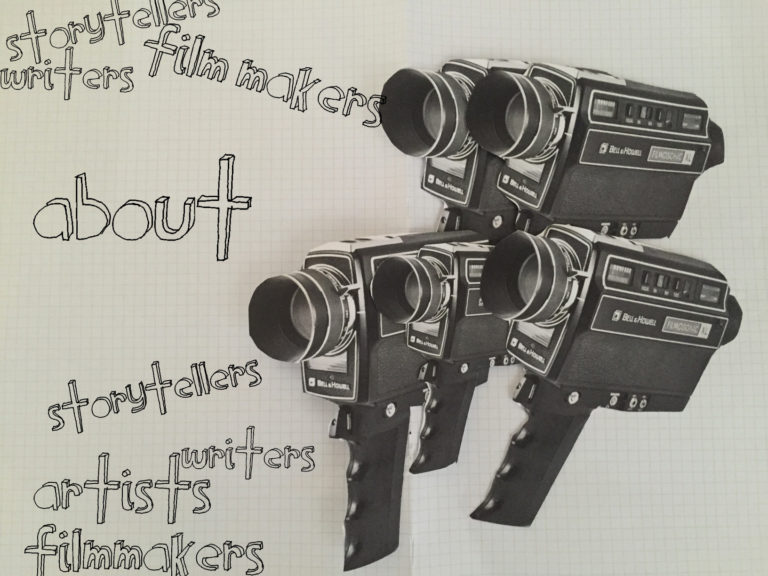 storytellers
writers film makers
about
storytellers
writers
artists
filmmakers
BELL & HOWELL
BELL & HOWELL FILMOSONIC XL
BELL & HOWELL
BELL & HOWELL
BELL & HOWELL
BELL & HOWELL FILMOSONIC XL